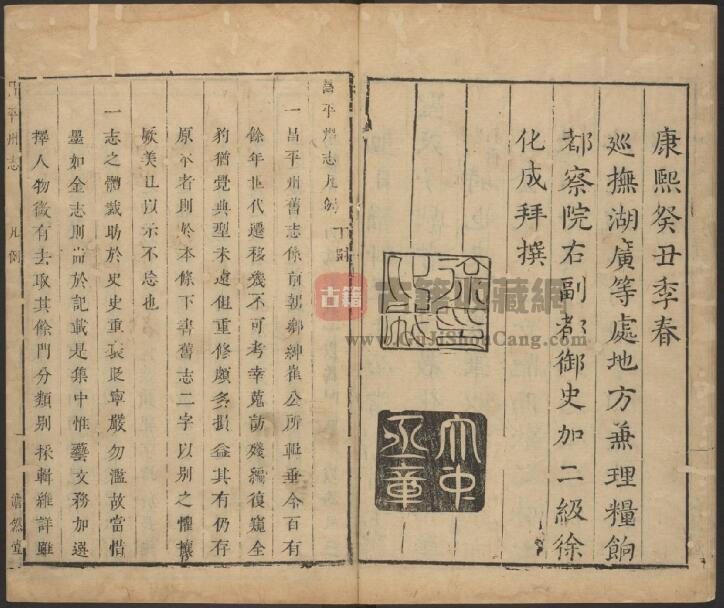 康熙癸丑季春
廵撫湖廣等處地方兼理糧餉
都察院右副都御史加二級徐
化成拜撰
大中丞章
昌平州志凡例
一昌平州舊志係前朝鄉紳崔公所輯垂今百有
餘年世代遷移幾不可考幸蒐訪殘編復窺全
豹猶覺典型未遠但重修頗多損益其有仍存
原本者則於本條下書舊志二字以别之懼攘
厥美且以示不忘也
一志之體裁昉於史史重褒貶寧嚴勿濫故當惜
墨如金志則尚於記載是集中惟藝文務加選
擇人物微有去取其餘門分類别採輯維詳雖
昌平州志
凡例
澹然堂
古籍
古籍收藏網
www.GuJiShouCang.com